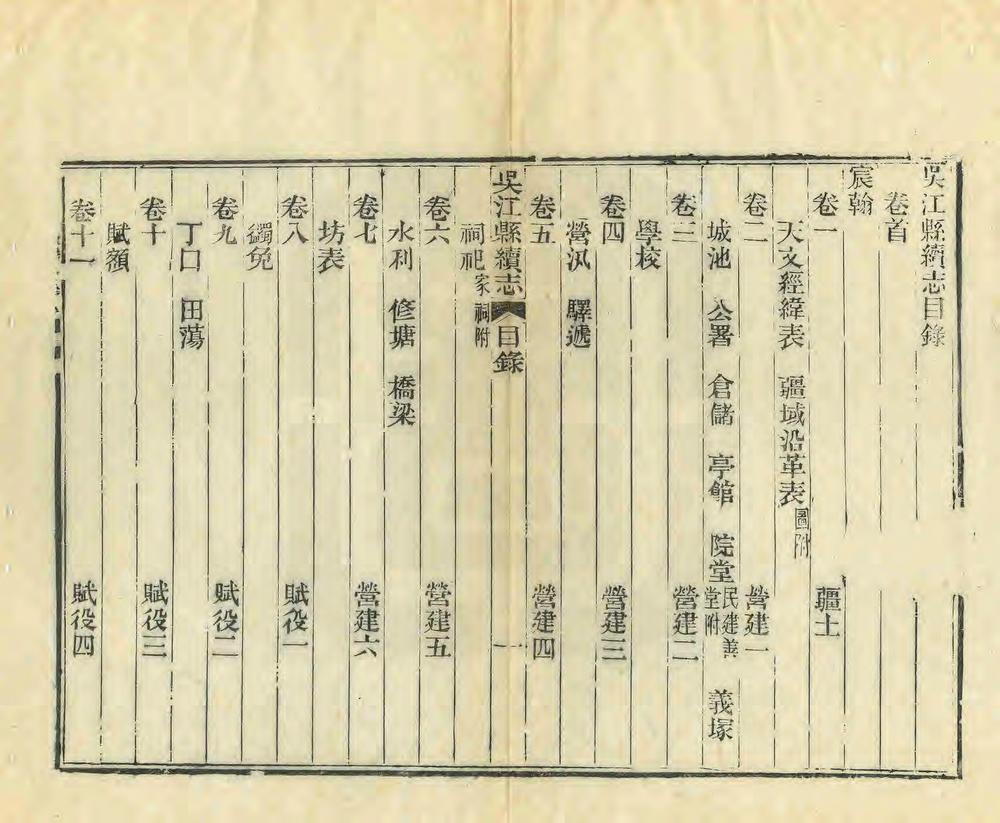 吳江縣續志目錄
卷首
宸翰
卷一 疆土
天文經緯表 疆域沿革表圖附
卷二 營建一
城池 公署 倉儲 亭館 院堂民建善堂附 義塚
卷三 營建二
學校
卷四 營建三
營汛 驛遞
卷五 營建四
吳江縣續志 目錄 一
祠祀家祠附
卷六 營建五
水利 修塘 橋梁
卷七 營建六
坊表
卷八 賦役一
蠲免
卷九 賦役二
丁口 田蕩
卷十 賦役三
賦額
卷十一 賦役四